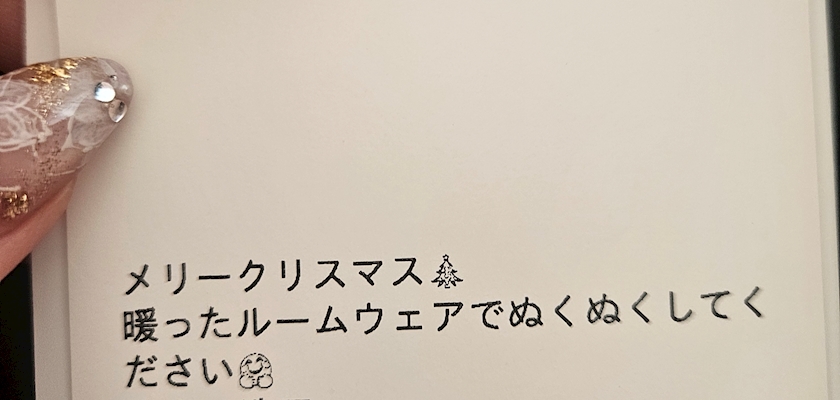 メリークリスマス🎄
暖ったルームウェアでぬくぬくしてく
ださい🤗